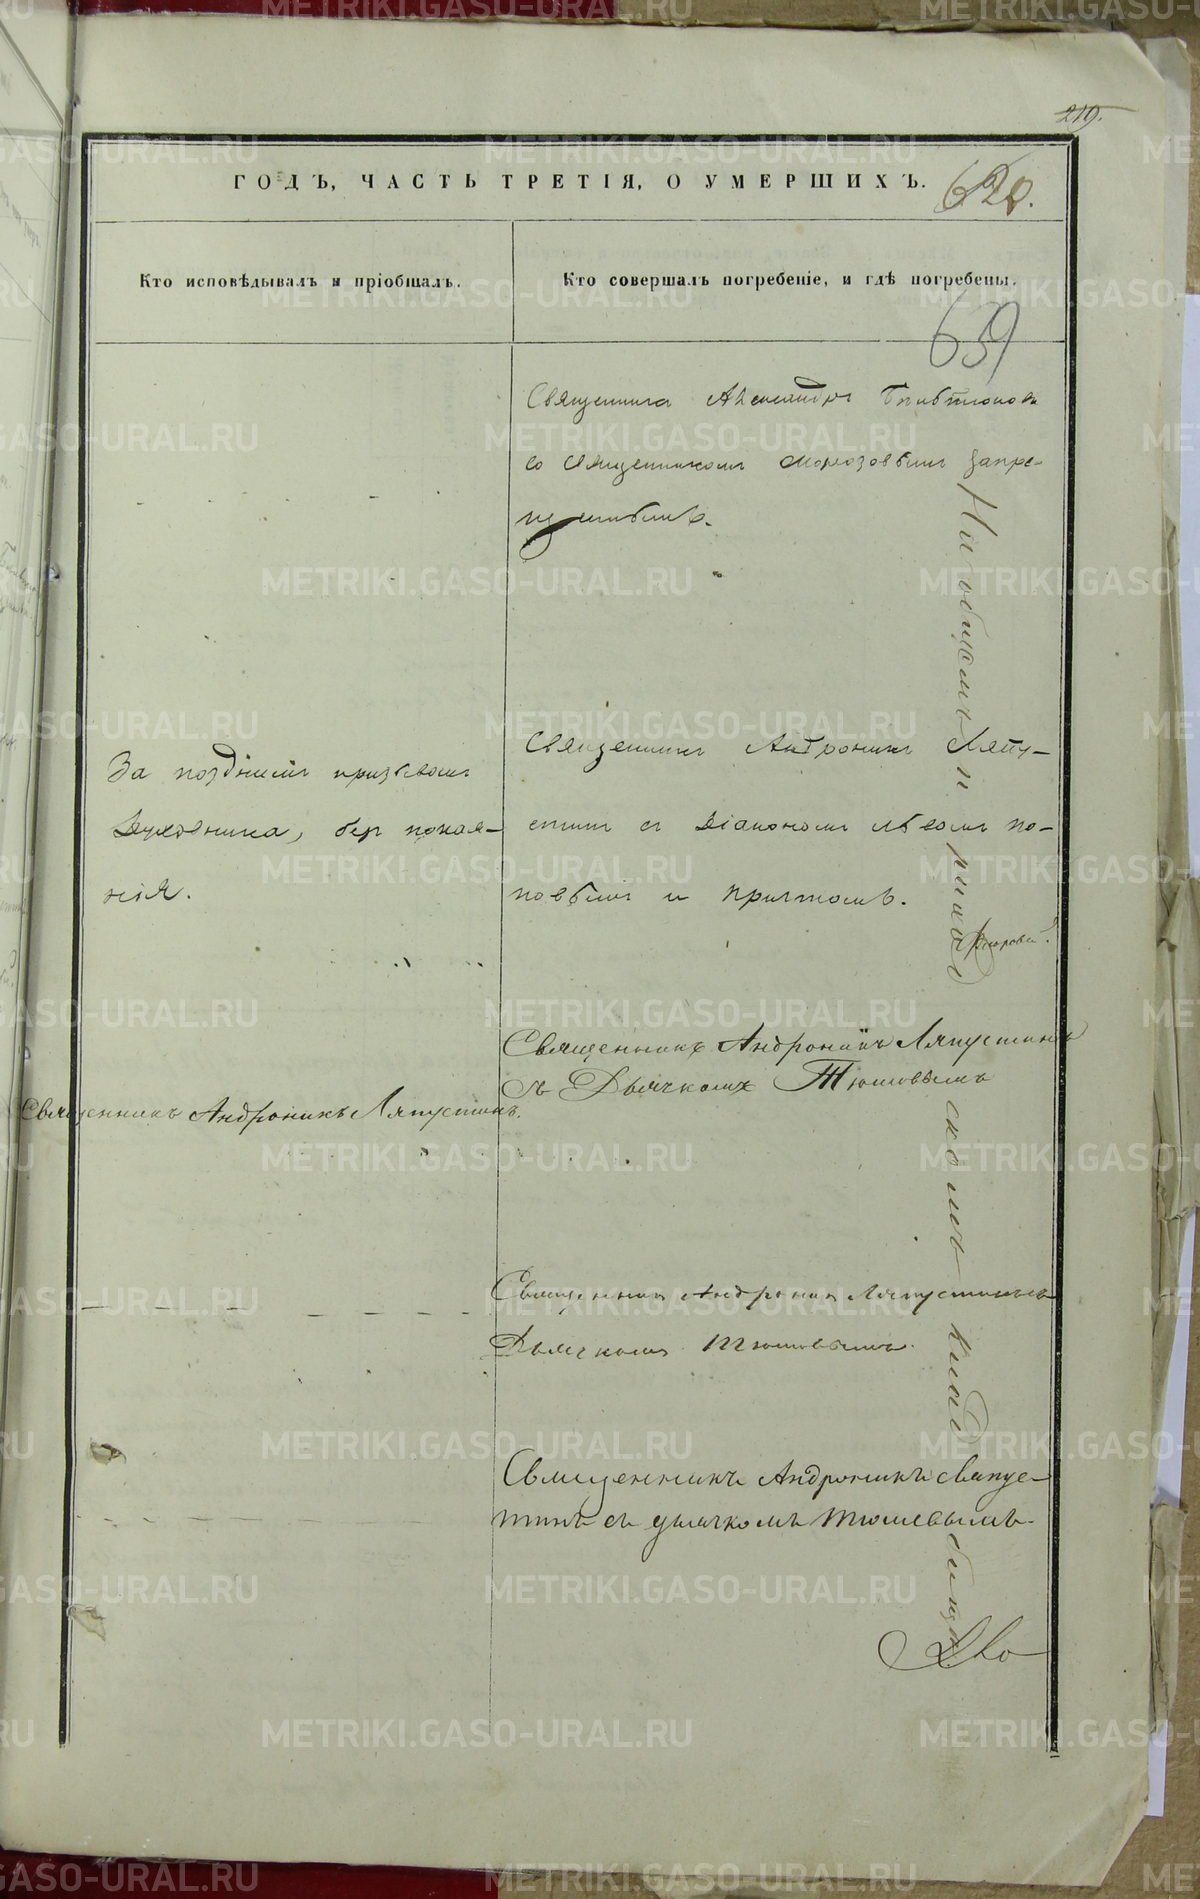 219.
ГОДЪ, ЧАСТЬ ТРЕТІЯ, О УМЕРШИХЪ.
620.
Кто исповѣдывалъ и пріобщалъ.
Кто совершалъ погребеніе, и гдѣ погребены.
659
Священника Александръ
со Священникомъ Морозовымъ Запре-
щеннымъ.
За позднимъ призывомъ
Духовника, безъ покая-
нія.
Священникъ Андроникъ Ляпу-
стинъ съ Діакономъ Львомъ По-
повымъ и причтомъ.
Священникъ Андроникъ Ляпустинъ.
Священникъ Андроникъ Ляпустинъ
съ Дьячкомъ Тюшовымъ
Священникъ Андроникъ Ляпустинъ съ
Дьячкомъ Тюшовымъ.
Священникъ Андроникъ Ляпус-
тинъ съ дьячкомъ Тюшевымъ.
На общемъ приход скомъ кладбищѣ
METRIKI.GASO-URAL.RU